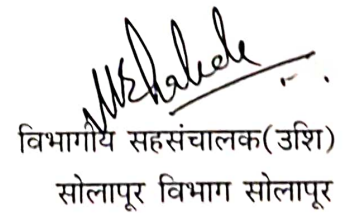 विभागीय सहसंचालक(उशि)
सोलापूर विभाग सोलापूर